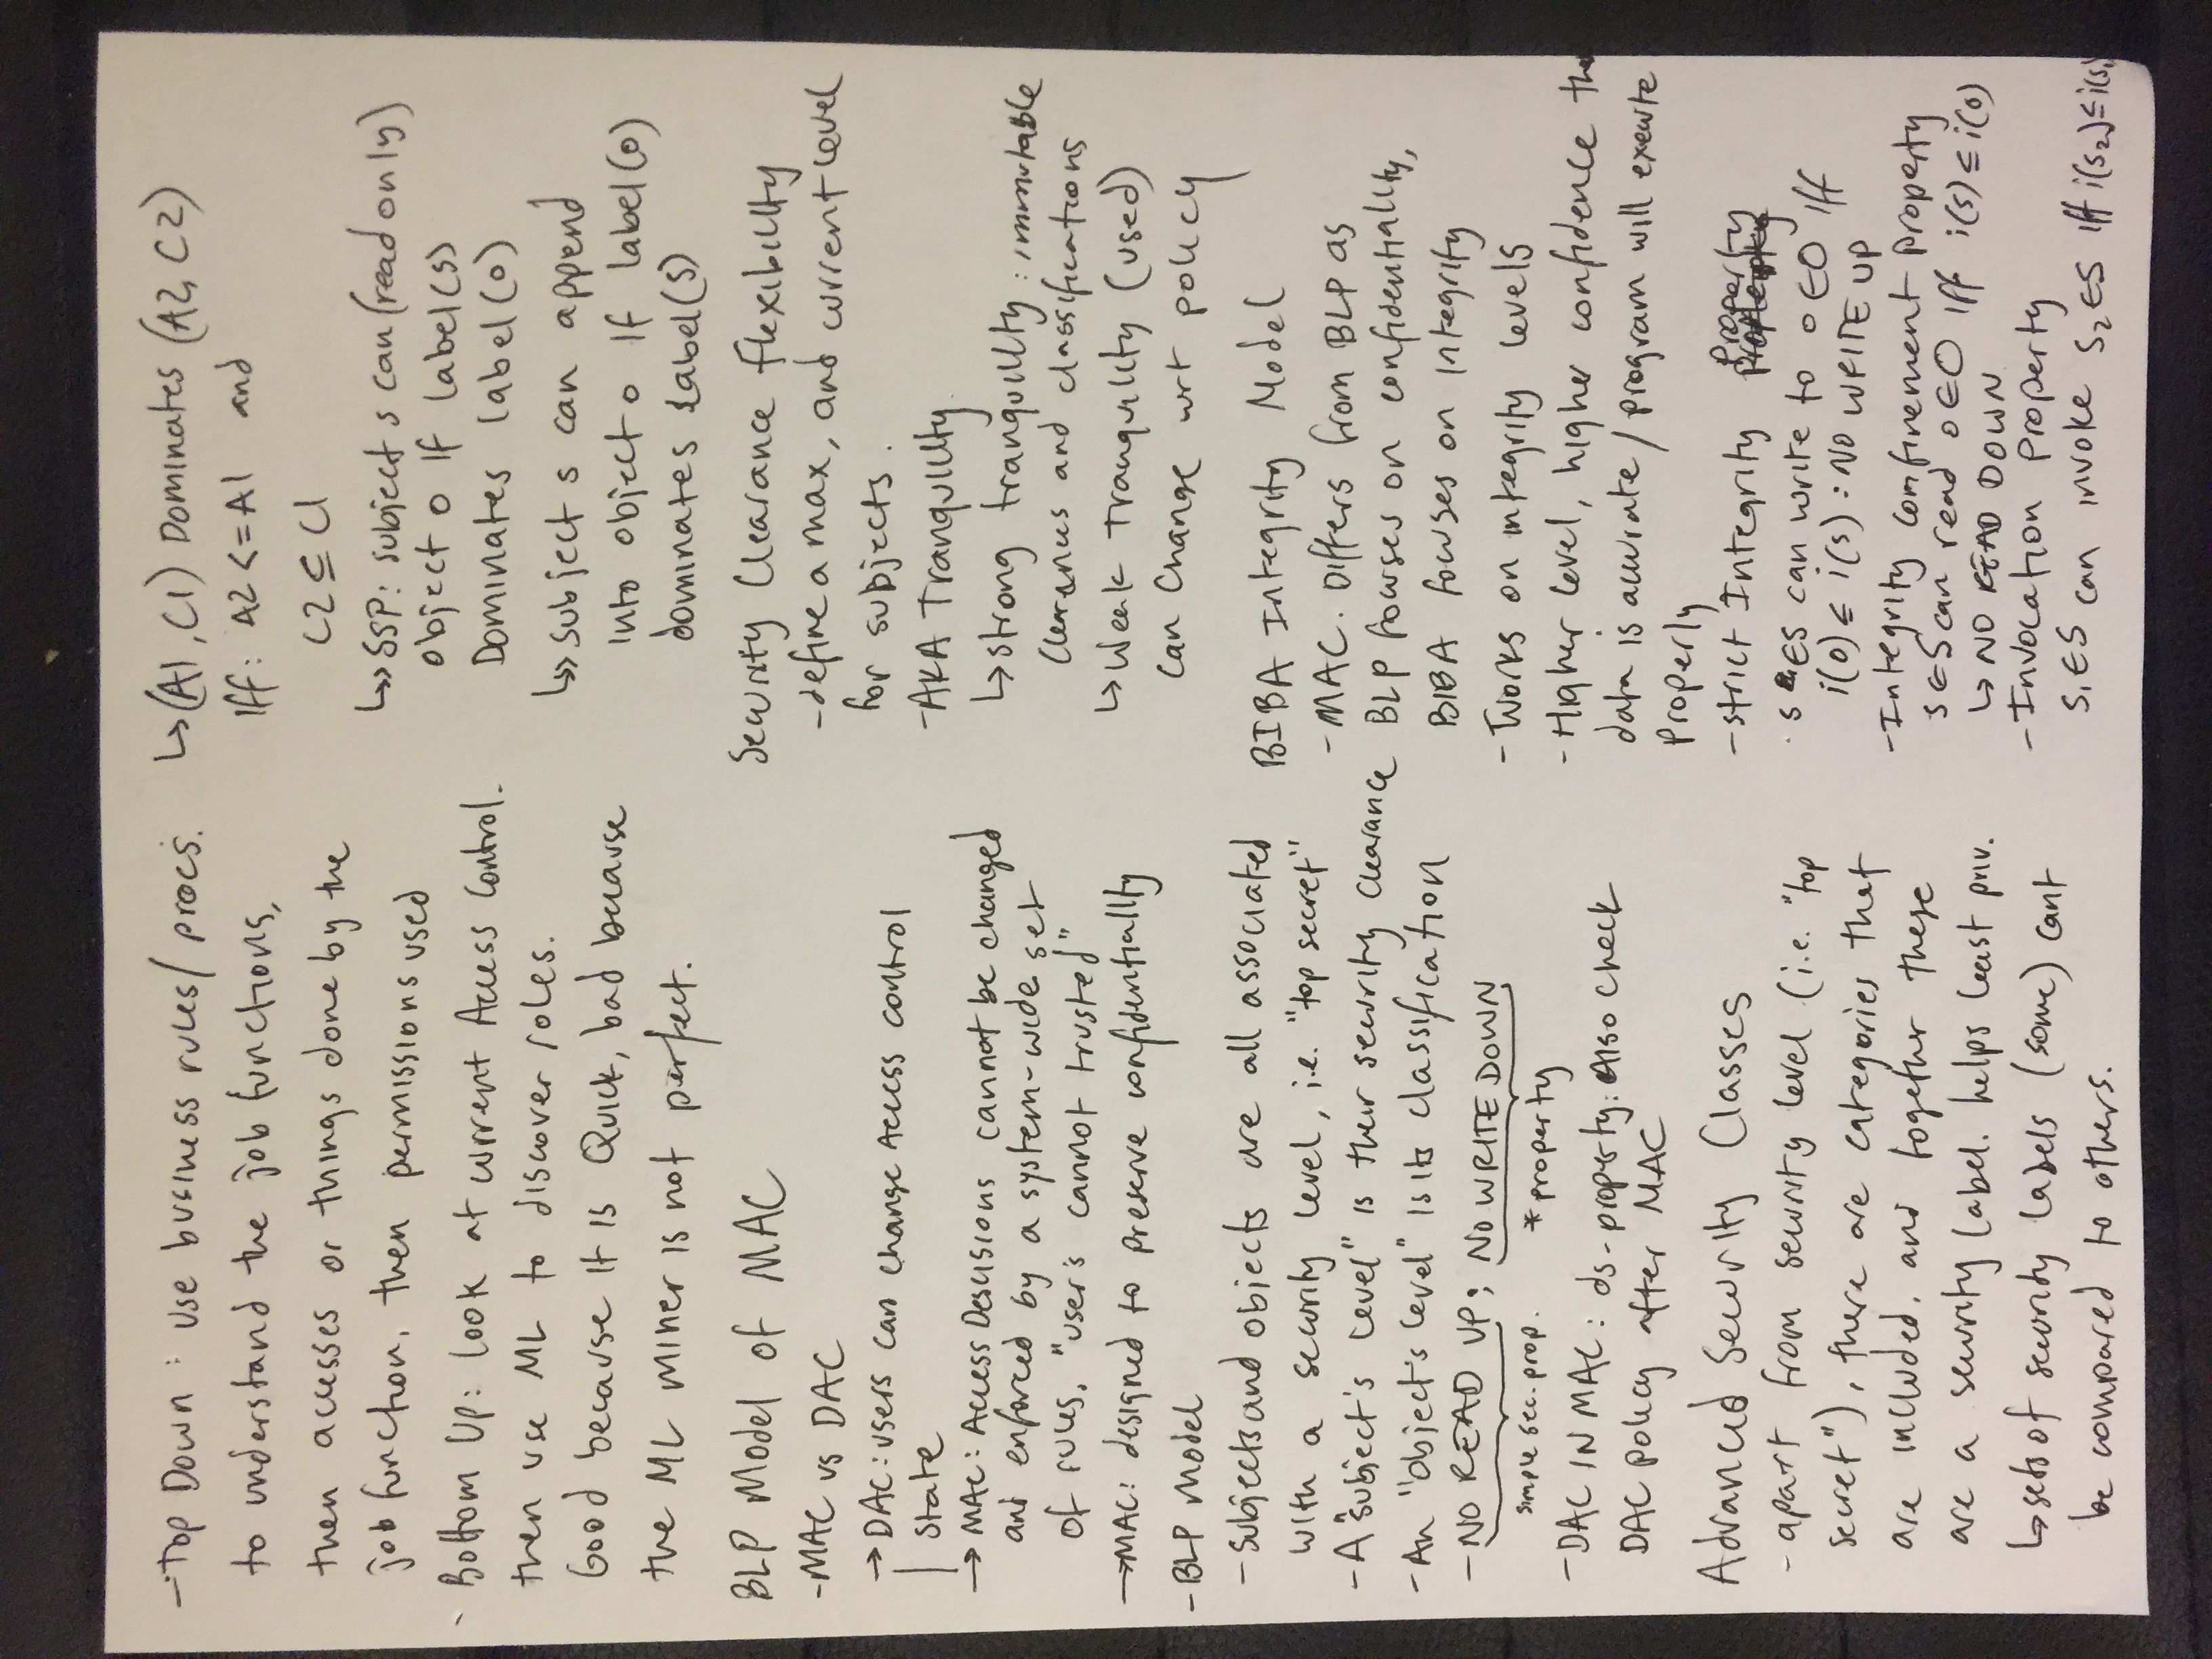 - Top Down : use business rules/ procs.
to understand the job functions,
then accesses or things done by the
job function, then permissions used
- Bottom Up: look at current Access Control.
then use ML to discover roles.
Good because it is Quick, bad because
the ML miner is not perfect.
BLP Model of MAC
- MAC vs DAC
→ DAC: users can change Access control
state
→ MAC: Access Descisions cannot be changed
and enforced by a system-wide set
of rules. "user's cannot trusted"
→ MAC: designed to preserve confidentiality
- BLP Model
- Subjects and objects are all associated
with a security level, i.e. "top secret"
- A "subject's level" is their security clearance
- An "object's level" is its classification
- NO READ UP; NO WRITE DOWN
simple sec. prop. * property
- DAC IN MAC: ds-property: Also check
DAC policy after MAC
Advanced Security Classes
- apart from security level (i.e. "top
secret"), there are categories that
are included. and together these
are a security label. helps least priv.
↳ sets of security labels (some) cant
be compared to others.
↳ (A1, C1) Dominates (A2, C2)
Iff: A2 <= A1 and
C2 ⊆ C1
↳> SSP: subject s can (read only)
object o If label(s)
Dominates label(o)
↳> subject s can append
into object o If label(o)
dominates label(s)
Security Clearance Flexibility
- define a max, and current level
for subjects.
- AKA Tranquility.
↳ strong tranquility : immutable
clearances and classifications
↳ Weak Tranquility (used)
can change wrt policy
BIBA Integrity Model
- MAC. Differs from BLP as
BLP focuses on confidentiality,
BIBA focuses on integrity
- Works on integrity levels
- Higher level, higher confidence
data is accurate / program will execute
properly
- strict Integrity Property
s ∈ S can write to o ∈ O iff
i(o) ≤ i(s) : NO WRITE UP
- Integrity confinement Property
s ∈ S can read o ∈ O iff i(s) ≤ i(o)
↳ NO READ DOWN
- Invocation Property
s₁ ∈ S can invoke s₂ ∈ S iff i(s₂) ≤ i(s₁